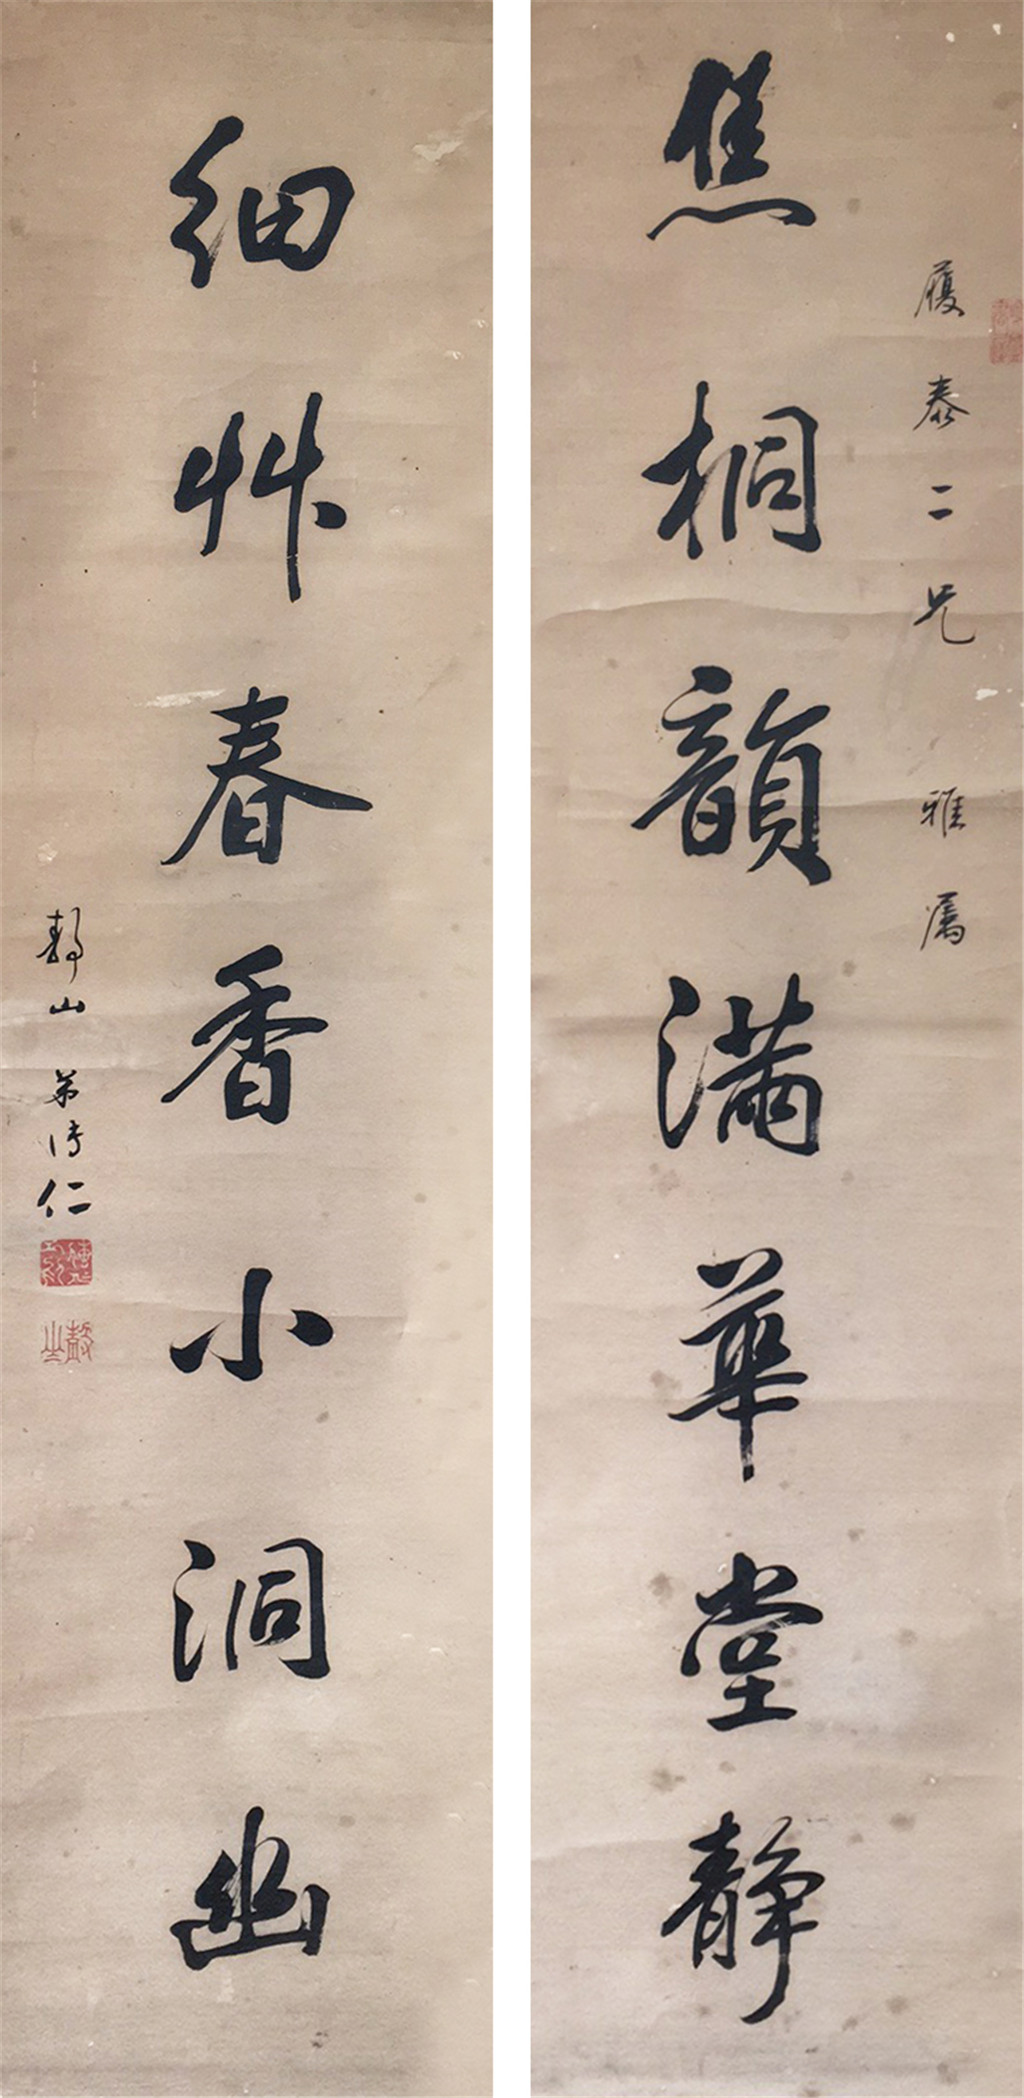 履泰二兄雅属
焦桐韻满華堂靜
細艸春香小洞幽
靜山弟傳仁